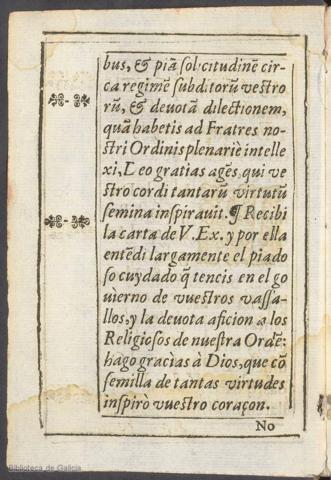 bus, & piã sollicitudinẽ cir-
ca regimẽ subditorũ vestro
rũ, & devotã dilectionem,
quã habetis ad Fratres no-
stri Ordinis plenariè intelle
xi, Deo gratias agẽs, qui ve
stro cordi tantarũ virtutũ
semina inspirauit. ¶ Recibi
la carta de V. Ex. y por ella
entẽdi largamente el piado
so cuydado q̃ teneis en el go
uierno de vuestros vassa-
llos, y la devota aficion a los
Religiosos de nuestra Ordẽ:
hago gracias à Dios, que cõ
semilla de tantas virtudes
inspirò vuestro coraçon.
No
Biblioteca de Galicia